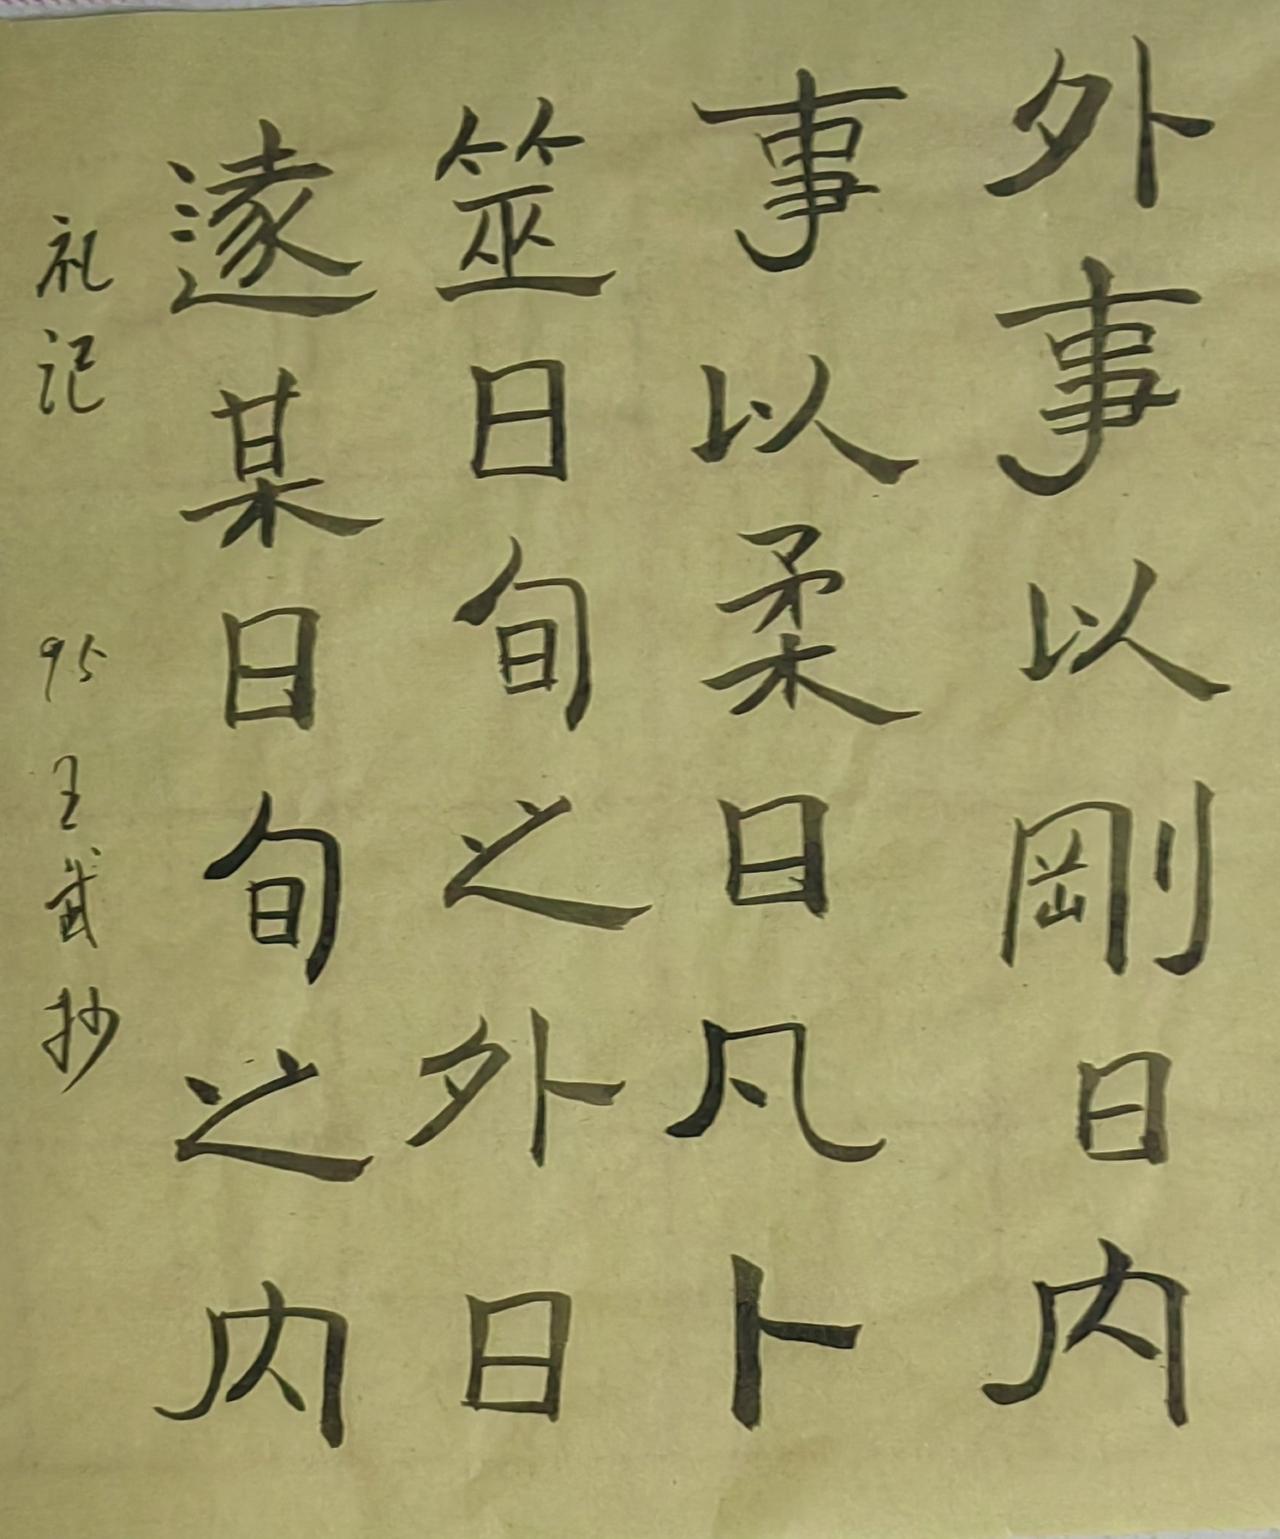 外事以剛日内
事以柔日凡卜
筮日旬之外日
遠某日旬之内
礼记 95 王武抄